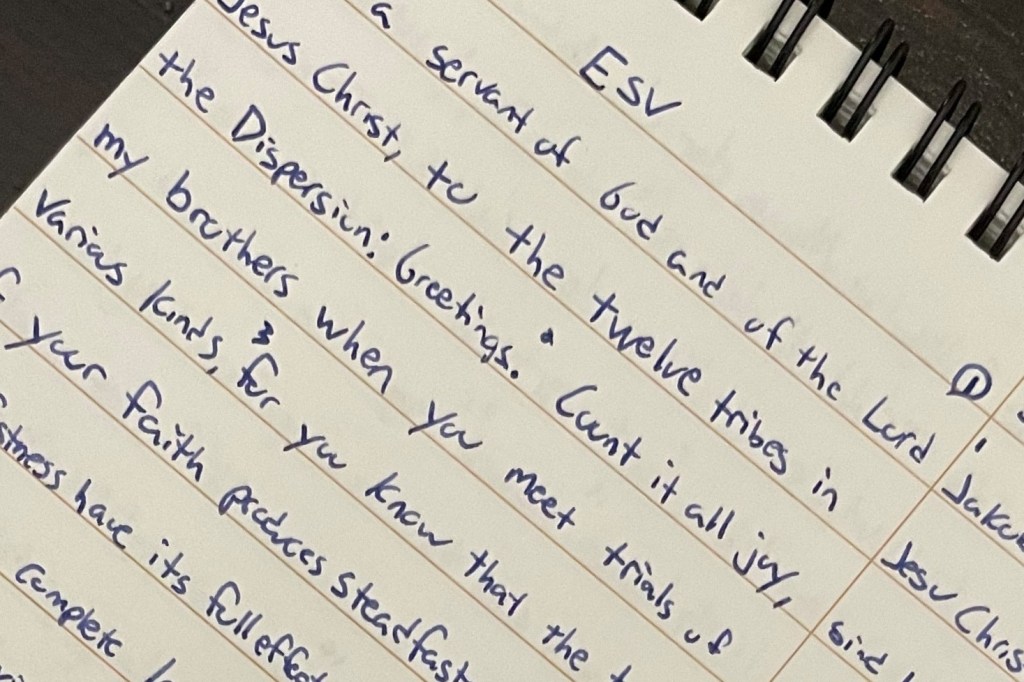 ESV
a servant of God and of the Lord
Jesus Christ, to the twelve tribes in
the Dispersion: Greetings. 2 Count it all joy,
my brothers when you meet trials of
various kinds, 3 for you know that the
your faith produces steadfast
have its full effect
complete
①
1
Jesu Chris
sind